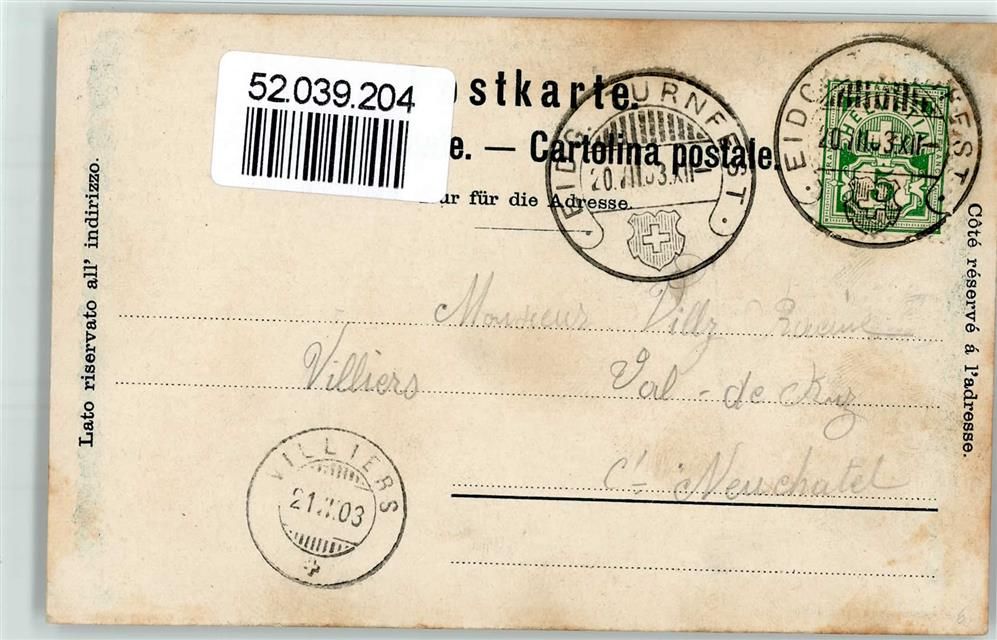 52.039.204
ostkarte.
e. — Cartolina postale.
ur für die Adresse.
EIDG. TURNFEST
20.VII.03.XII
EIDG. TURNFEST
20.VII.03.XII
HELVETIA
5
Lato riservato all' indirizzo.
Côté réservé á l'adresse.
Monsieur Villy
Villiers Val-de Ruz
Ct. Neuchatel
VILLIERS
21.VII.03